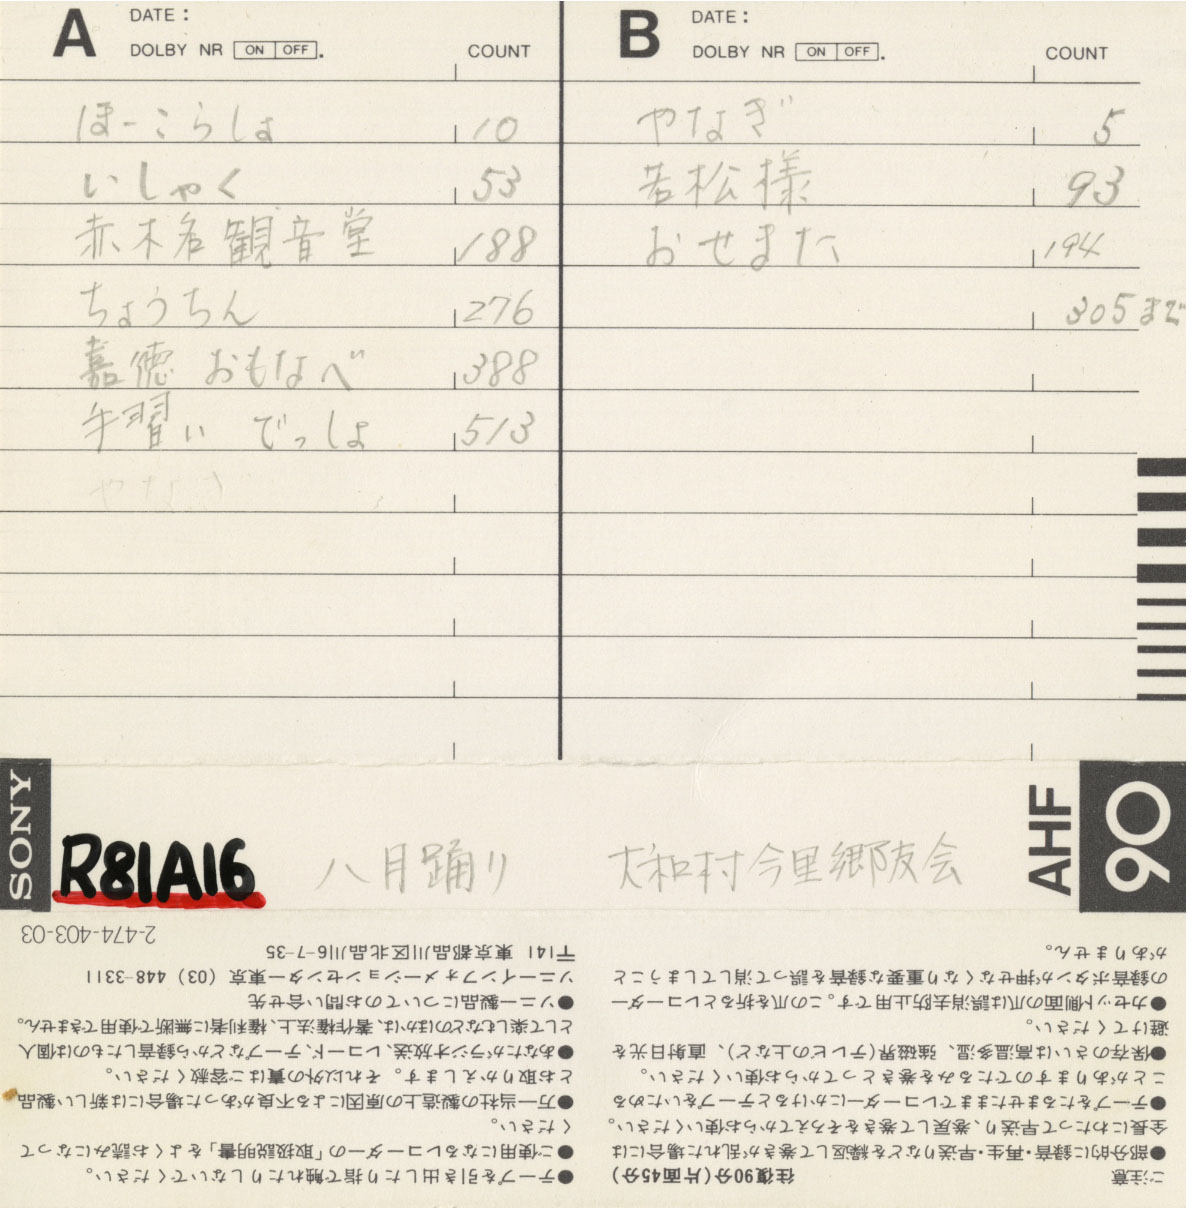 A DATE:
DOLBY NR ON OFF. COUNT
ほーこらしょ 10
いしゃく 53
赤木名観音堂 188
ちょうちん 276
嘉徳 おもなべ 388
手習い でっしょ 513
やなぎ
B DATE:
DOLBY NR ON OFF. COUNT
やなぎ 5
若松様 93
おせまた 194
305まで
SONY
R81A16 八月踊り 大和村今里郷友会
AHF
90
ご注意 往復90分(片面45分)
●部分的に録音・再生・早送りなどを繰返して巻きが乱れた場合には
全長にわたって早送り、巻戻して巻きをそろえてからお使いください。
●テープをたるませたままでレコーダーにかけるとテープをいためる
ことがありますのでたるみを巻きとってからお使いください。
●保存のさいは高温多湿、強磁界(テレビの上など)、直射日光を
避けてください。
●カセット側面の爪は誤消去防止用です。この爪を折るとレコーダー
の録音ボタンが押せなくなり重要な録音を誤って消してしまうこと
がありません。
●テープを引き出したり指で触れたりしないでください。
●ご使用になるレコーダーの「取扱説明書」をよくお読みになって
ください。
●万一当社の製造上の原因による不良があった場合には新しい製品
とお取りかえします。それ以外の責はご容赦ください。
●あなたがラジオ放送、レコード、テープなどから録音したものは個人
として楽しむなどのほかは、著作権法上、権利者に無断で使用できません。
●ソニー製品についてのお問い合せ先
ソニーインフォメーションセンター東京 (03) 448-3311
〒141 東京都品川区北品川6-7-35
2-474-403-03